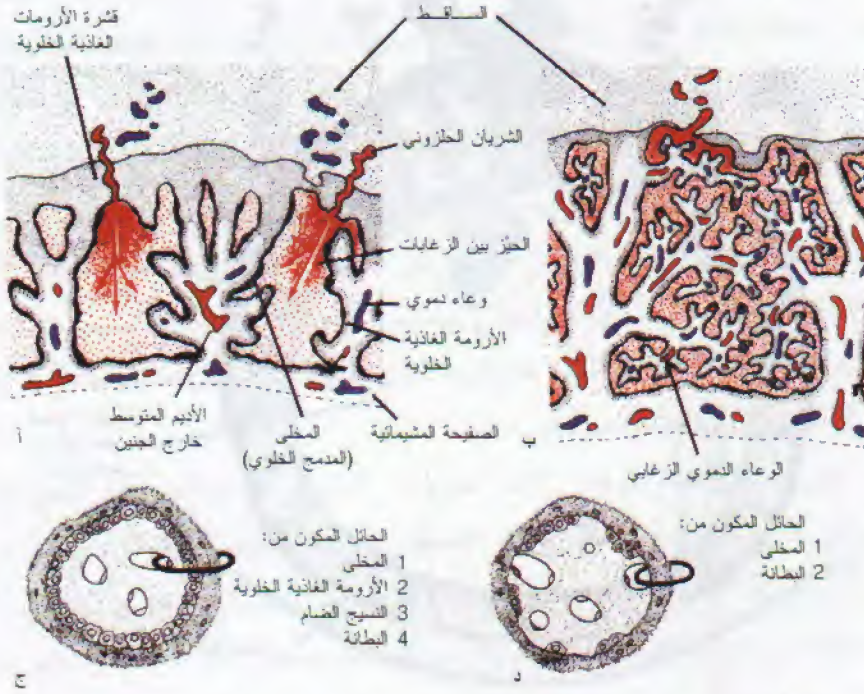 قشرة الأرومات
الغاذية الخلوية
الساقط
الشريان الحلزوني
الحيّز بين الزغابات
وعاء دموي
الأرومة الغاذية
الخلوية
الصفيحة المشيمائية
الأديم المتوسط
خارج الجنين
المخلى
(المدمج الخلوي)
أ
ب
الوعاء الدموي الزغابي
الحائل المكون من:
1 المخلى
2 الأرومة الغاذية الخلوية
3 النسيج الضام
4 البطانة
ج
الحائل المكون من:
1 المخلى
2 البطانة
د